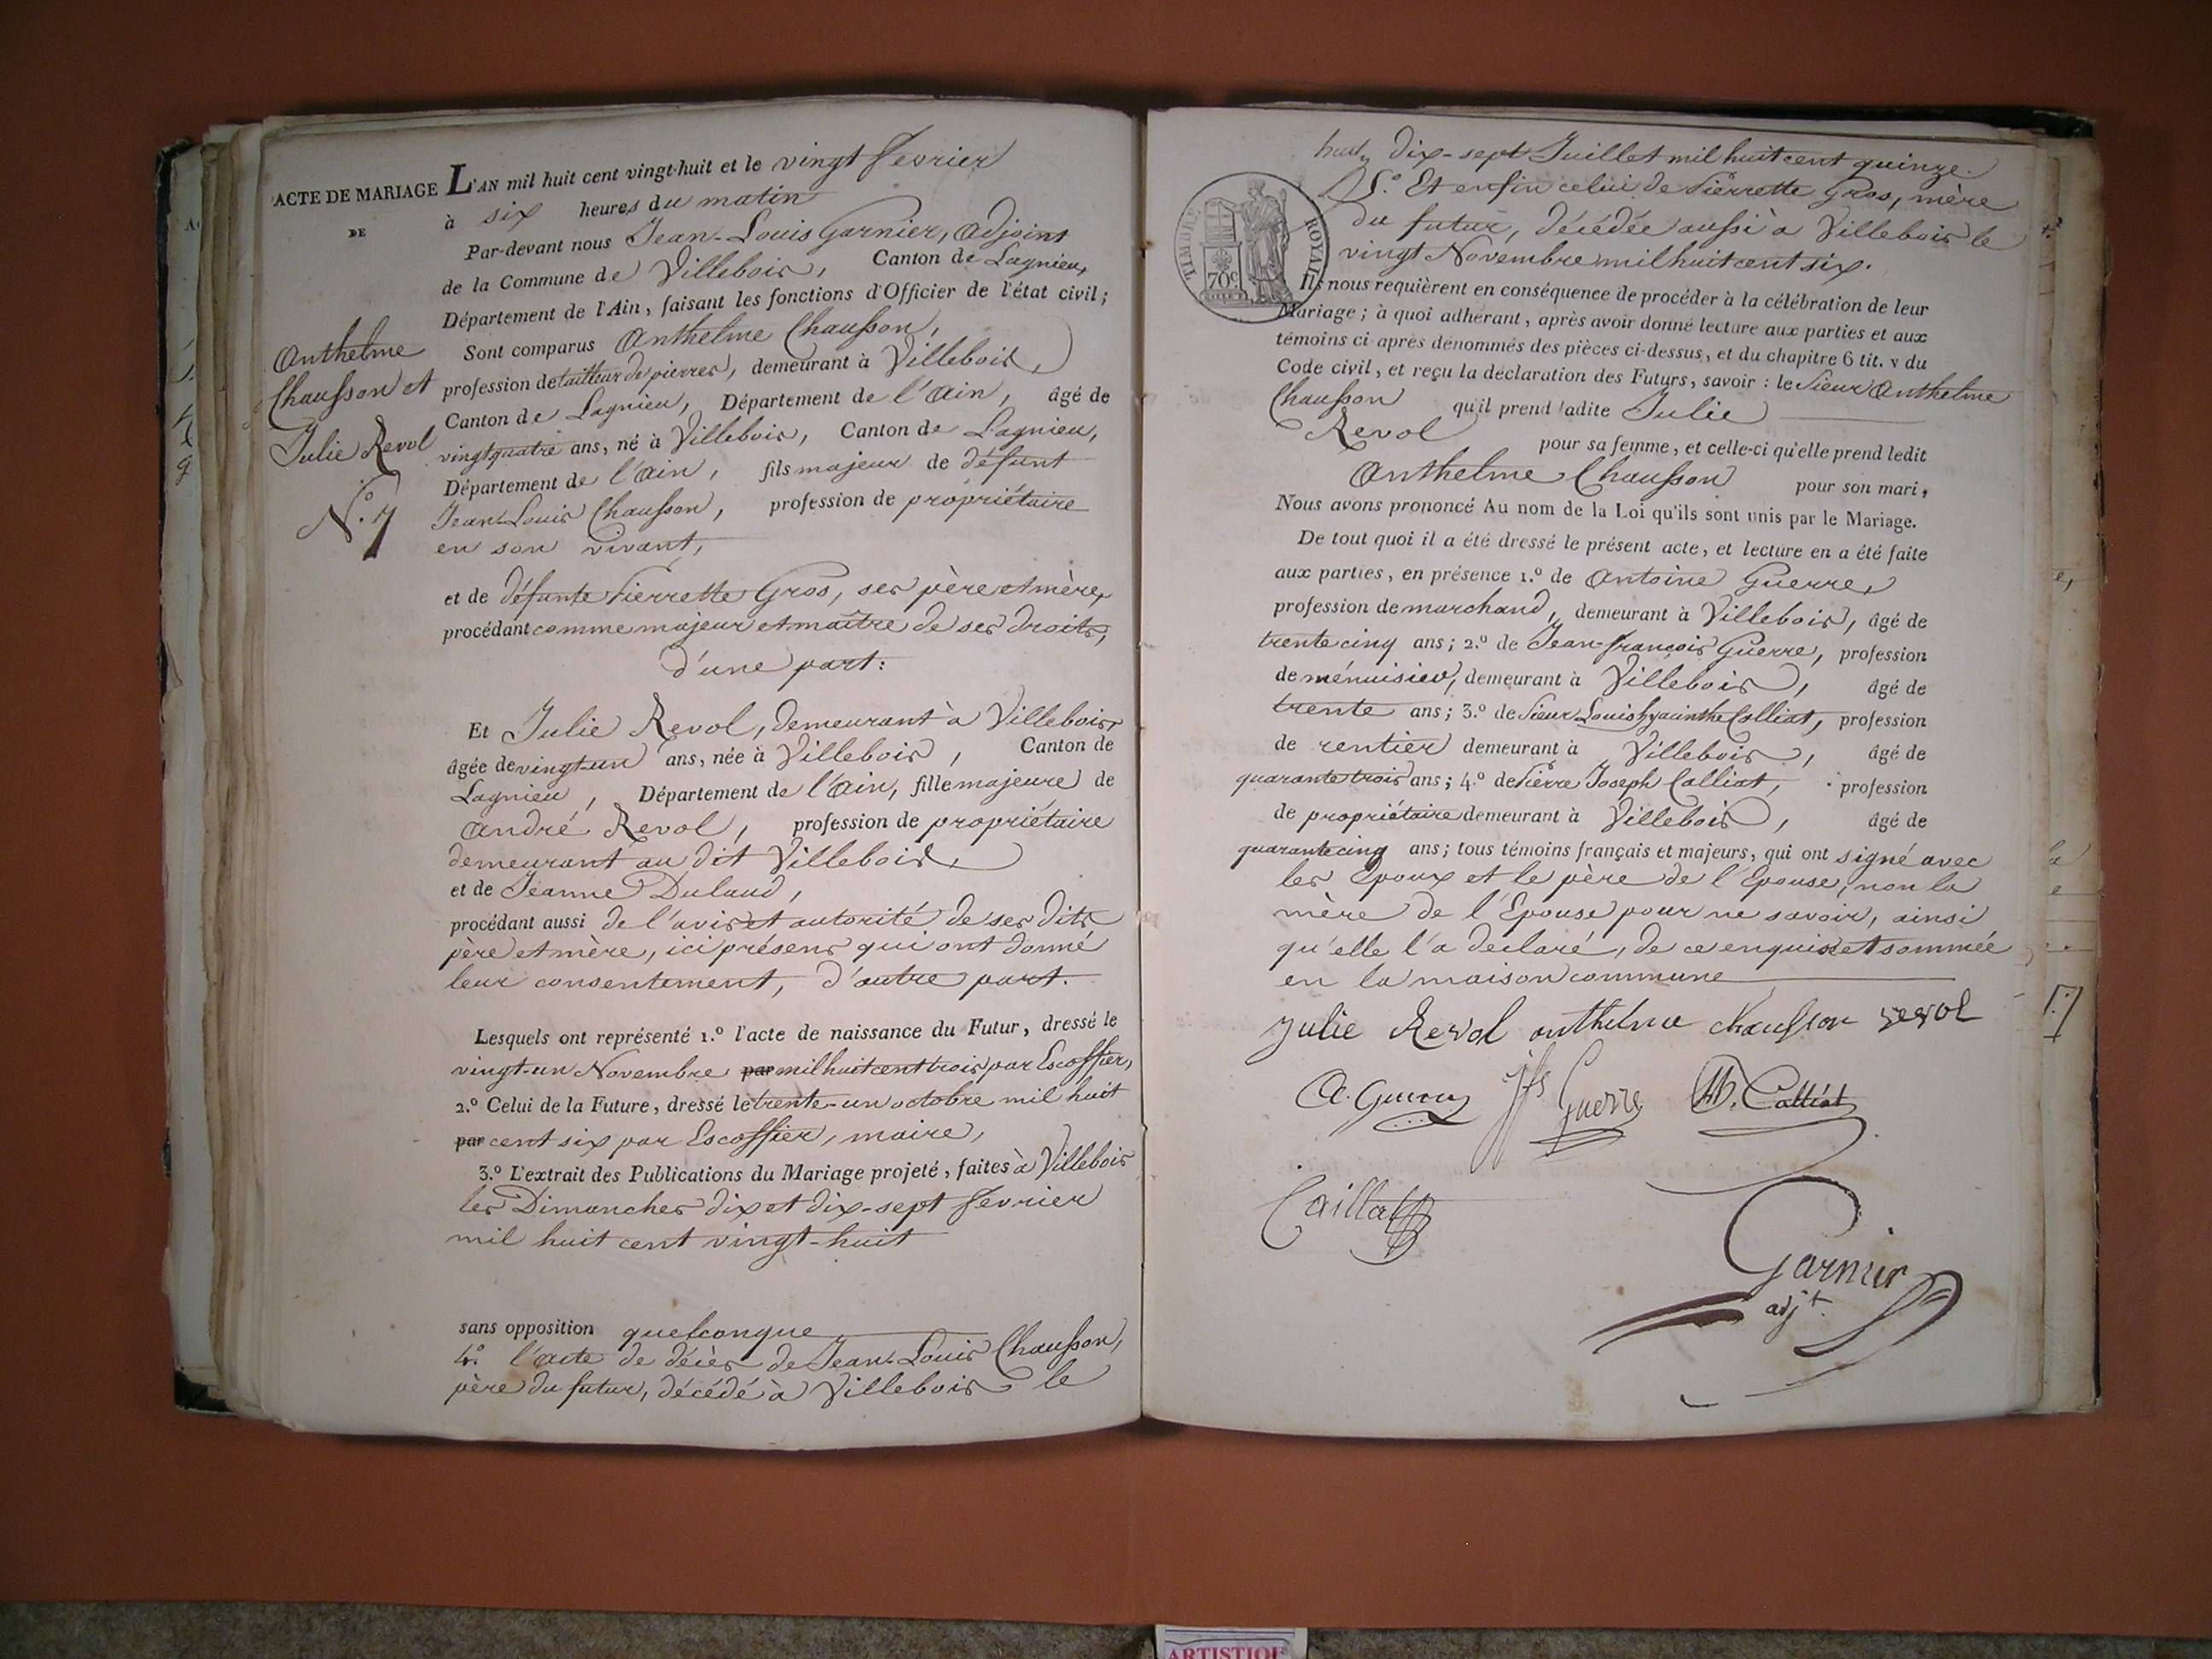 ACTE DE MARIAGE
DE
Anthelme
Chausson et
Julie Revol
N.o 7
L'AN mil huit cent vingt-huit et le vingt fevrier
à six heures du matin
Par-devant nous Jean-Louis Garnier, adjoint
de la Commune de Villebois, Canton de Lagnieu,
Département de l'Ain, faisant les fonctions d'Officier de l'état civil;
Sont comparus Anthelme Chausson,
profession de tailleur de pierres, demeurant à Villebois,
Canton de Lagnieu, Département de l'Ain, âgé de
vingt quatre ans, né à Villebois, Canton de Lagnieu,
Département de l'Ain, fils majeur de défunt
Jean-Louis Chausson, profession de propriétaire
en son vivant,
et de défunte Pierrette Gros, ses père et mère,
procédant comme majeur et maître de ses droits,
d'une part:
Et Julie Revol, demeurant à Villebois,
âgée de vingt-un ans, née à Villebois, Canton de
Lagnieu, Département de l'Ain, fille majeure de
André Revol, profession de propriétaire
demeurant au dit Villebois,
et de Jeanne Dulaud,
procédant aussi de l'avis et autorité de ses dits
père et mère, ici présens qui ont donné
leur consentement, d'autre part.
Lesquels ont représenté 1.o l'acte de naissance du Futur, dressé le
vingt-un Novembre par mil huit cent trois par Escoffier,
2.o Celui de la Future, dressé le trente-un octobre mil huit
par cent six par Escoffier, maire,
3.o L'extrait des Publications du Mariage projeté, faites à Villebois
les Dimanches dix et dix-sept fevrier
mil huit cent vingt-huit
sans opposition quelconque
4.o l'acte de décès de Jean-Louis Chausson,
père du futur, décédé à Villebois le
dix-sept Juillet mil huit cent quinze.
5.o Et enfin celui de Pierrette Gros, mère
du futur, décédée aussi à Villebois le
vingt Novembre mil huit cent six.
TIMBRE ROYAL
70c
Ils nous requièrent en conséquence de procéder à la célébration de leur
Mariage; à quoi adhérant, après avoir donné lecture aux parties et aux
témoins ci-après dénommés des pièces ci-dessus, et du chapitre 6 tit. v du
Code civil, et reçu la déclaration des Futurs, savoir: le Sieur Anthelme
Chausson qu'il prend ladite Julie
Revol pour sa femme, et celle-ci qu'elle prend ledit
Anthelme Chausson pour son mari,
Nous avons prononcé Au nom de la Loi qu'ils sont unis par le Mariage.
De tout quoi il a été dressé le présent acte, et lecture en a été faite
aux parties, en présence 1.o de Antoine Guerre,
profession de marchand, demeurant à Villebois, âgé de
trente cinq ans; 2.o de Jean-françois Guerre, profession
de ménuisier, demeurant à Villebois, âgé de
trente ans; 3.o de Sieur Louis hyacinthe Calliat, profession
de rentier demeurant à Villebois, âgé de
quarante trois ans; 4.o de Pierre Joseph Calliat, profession
de propriétaire demeurant à Villebois, âgé de
quarante cinq ans; tous témoins français et majeurs, qui ont signé avec
les Epoux et le père de l'Epouse, non la
mère de l'Epouse pour ne savoir, ainsi
qu'elle l'a declaré, de ce enquise et sommée
en la maison commune
Julie Revol anthelme chausson revol
A. Guerre jfs Guerre H. Calliat
Caillat
Garnier
adjt.
ARTISTIQUE